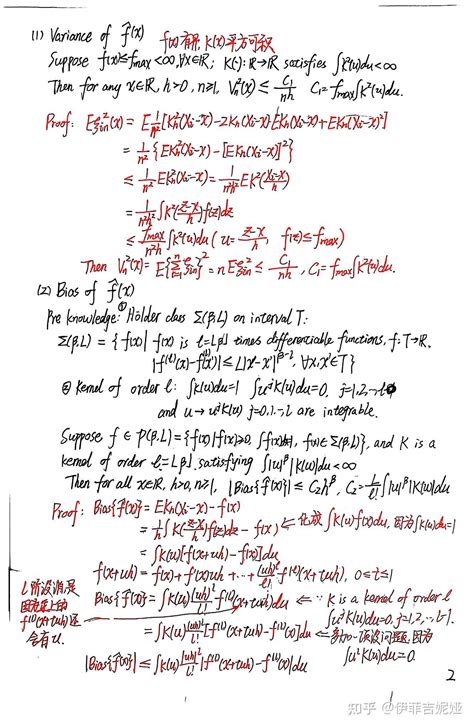 (1) Variance of f̂(x) f(x)有界, K(x)平方可积
Suppose f(x)≤fmax<∞, ∀x∈ℝ; K(·): ℝ→ℝ satisfies ∫K²(u)du<∞
Then for any x∈ℝ, h>0, n≥1, Vn²(x) ≤ C₁/nh C₁=fmax∫K²(u)du.
Proof: Eξin²(x) = E 1/n² [Kh²(Xi-x)-2Kh(Xi-x)·EKh(Xi-x)+EKh[Xi-x)²]
= 1/n² {EKh²(Xi-x) - [EKh(Xi-x)]²}
≤ 1/n² EKh²(Xi-x) = 1/n²h² EK²(Xi-x/h)
= 1/n²h² ∫K²(z-x/h)f(z)dz
≤ fmax/n²h ∫K²(u)du (u=z-x/h, f(z)≤fmax)
Then Vn²(x)=E{Σξin}²=nEξin² ≤ C₁/nh, C₁=fmax∫K²(u)du.
(2) Bias of f̂(x)
Pre knowledge: ① Hölder class Σ(β,L) on interval T:
Σ(β,L) = {f(x)| f(x) is l=⌊β⌋ times differentiable functions, f: T→ℝ,
|f⁽ˡ⁾(x)-f⁽ˡ⁾(x')| ≤ L|x-x'|^(β-l), ∀x,x'∈T}
② kernel of order l: ∫K(u)du=1 ∫uʲK(u)du=0, j=1,2,…,l
and u→uʲK(u) j=0,1…,l are integrable.
Suppose f∈P(β,L)={f(x)|f(x)≥0, ∫f(x)dx=1, f(x)∈Σ(β,L)}, and K is a
kernel of order l=⌊β⌋ satisfying ∫|u|^β|K(u)|du<∞
Then for all x∈ℝ, h>0, n≥1, |Bias{f̂(x)}| ≤ C₂h^β, C₂=L/l! ∫|u|^β|K(u)|du
Proof: Bias{f̂(x)} = EKh(Xi-x) - f(x)
= 1/h ∫K(z-x/h)f(z)dz - f(x) ⇐ 化成∫K(u)f(x)du, 因为∫K(u)du=1
= ∫K(u)[f(x+uh)-f(x)]du
f(x+uh) = f(x)+f'(x)uh+…+(uh)ˡ/l! f⁽ˡ⁾(x+τuh), 0≤τ≤1
l阶没消, 是
因为乘上的
f⁽ˡ⁾(x+τuh)还
含有u.
Bias{f̂(x)} = ∫K(u)(uh)ˡ/l! f⁽ˡ⁾(x+τuh)du ⇐ ∵ K is a kernel of order l
∫uʲK(u)du=0, j=1,2,…,l-1.
= ∫K(u)(uh)ˡ/l! [f⁽ˡ⁾(x+τuh)-f⁽ˡ⁾(x)]du ⇐ 多加一项没问题, 因为
∫uˡK(u)du=0.
|Bias{f̂(x)}| ≤ ∫K(u)(uh)ˡ/l! |f⁽ˡ⁾(x+τuh)-f⁽ˡ⁾(x)|du
2
知乎 @伊菲吉妮娅